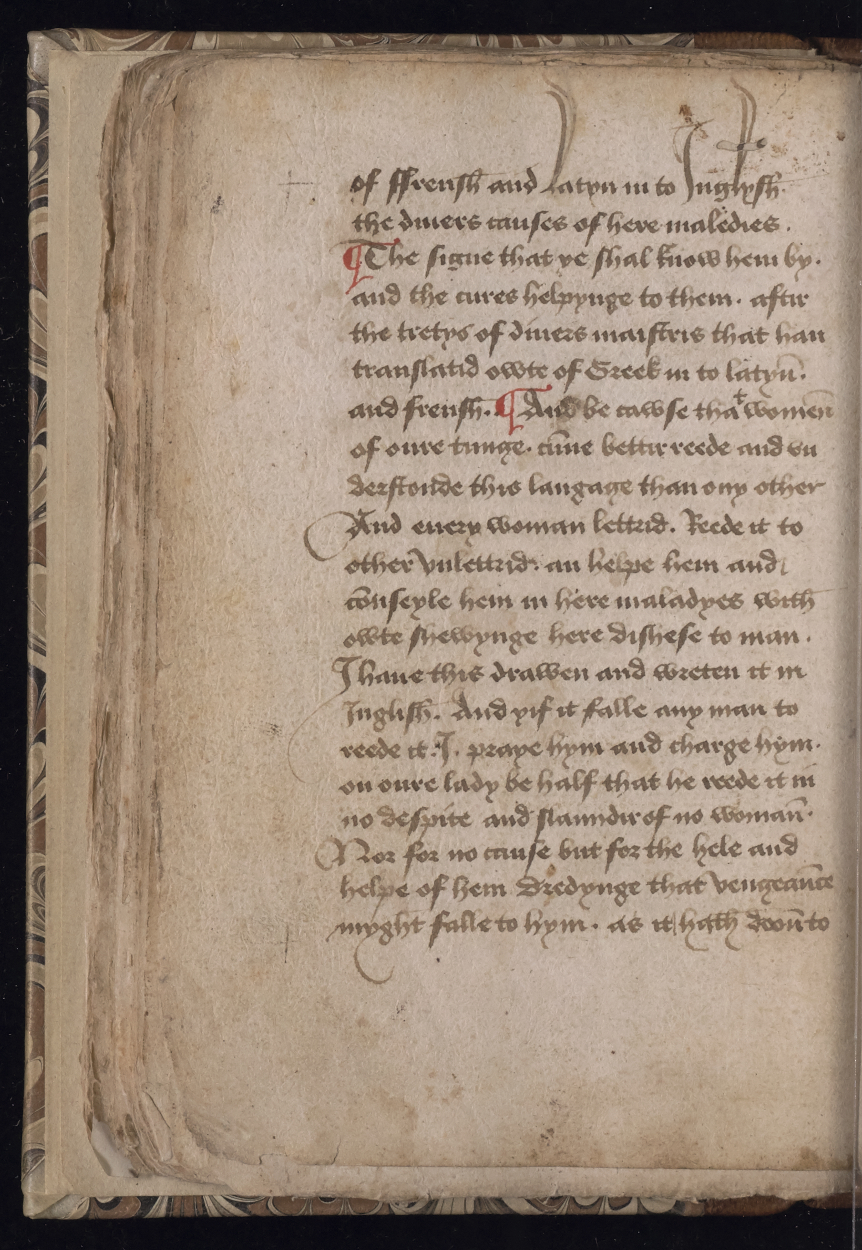 of ffrensh and latyn in to Inglysh.
the diuers causes of here maledies.
¶The signe that ye shal know hem by.
and the cures helpynge to them. aftir
the tretys of diuers maistris that han
translatid owte of Greek in to latyn̄.
and frensh. ¶And be cawse that women̄
of oure tunge. cūne bettir reede and vn
derstonde this langage than ony other
And euery woman lettrid. Reede it to
other vnlettrid. an helpe hem and
cōnseyle hem in here maladyes with
owte shewynge here dishese to man.
I haue this drawen and wreten it in
Inglish. And yif it falle any man to
reede it. I. praye hym and charge hym.
on oure lady be half that he reede it in
no despite and slaundir of no woman̄.
Nor for no cause but for the hele and
helpe of hem Dredynge that vengeaūce
myght falle to hym. as it hath doon̄ to